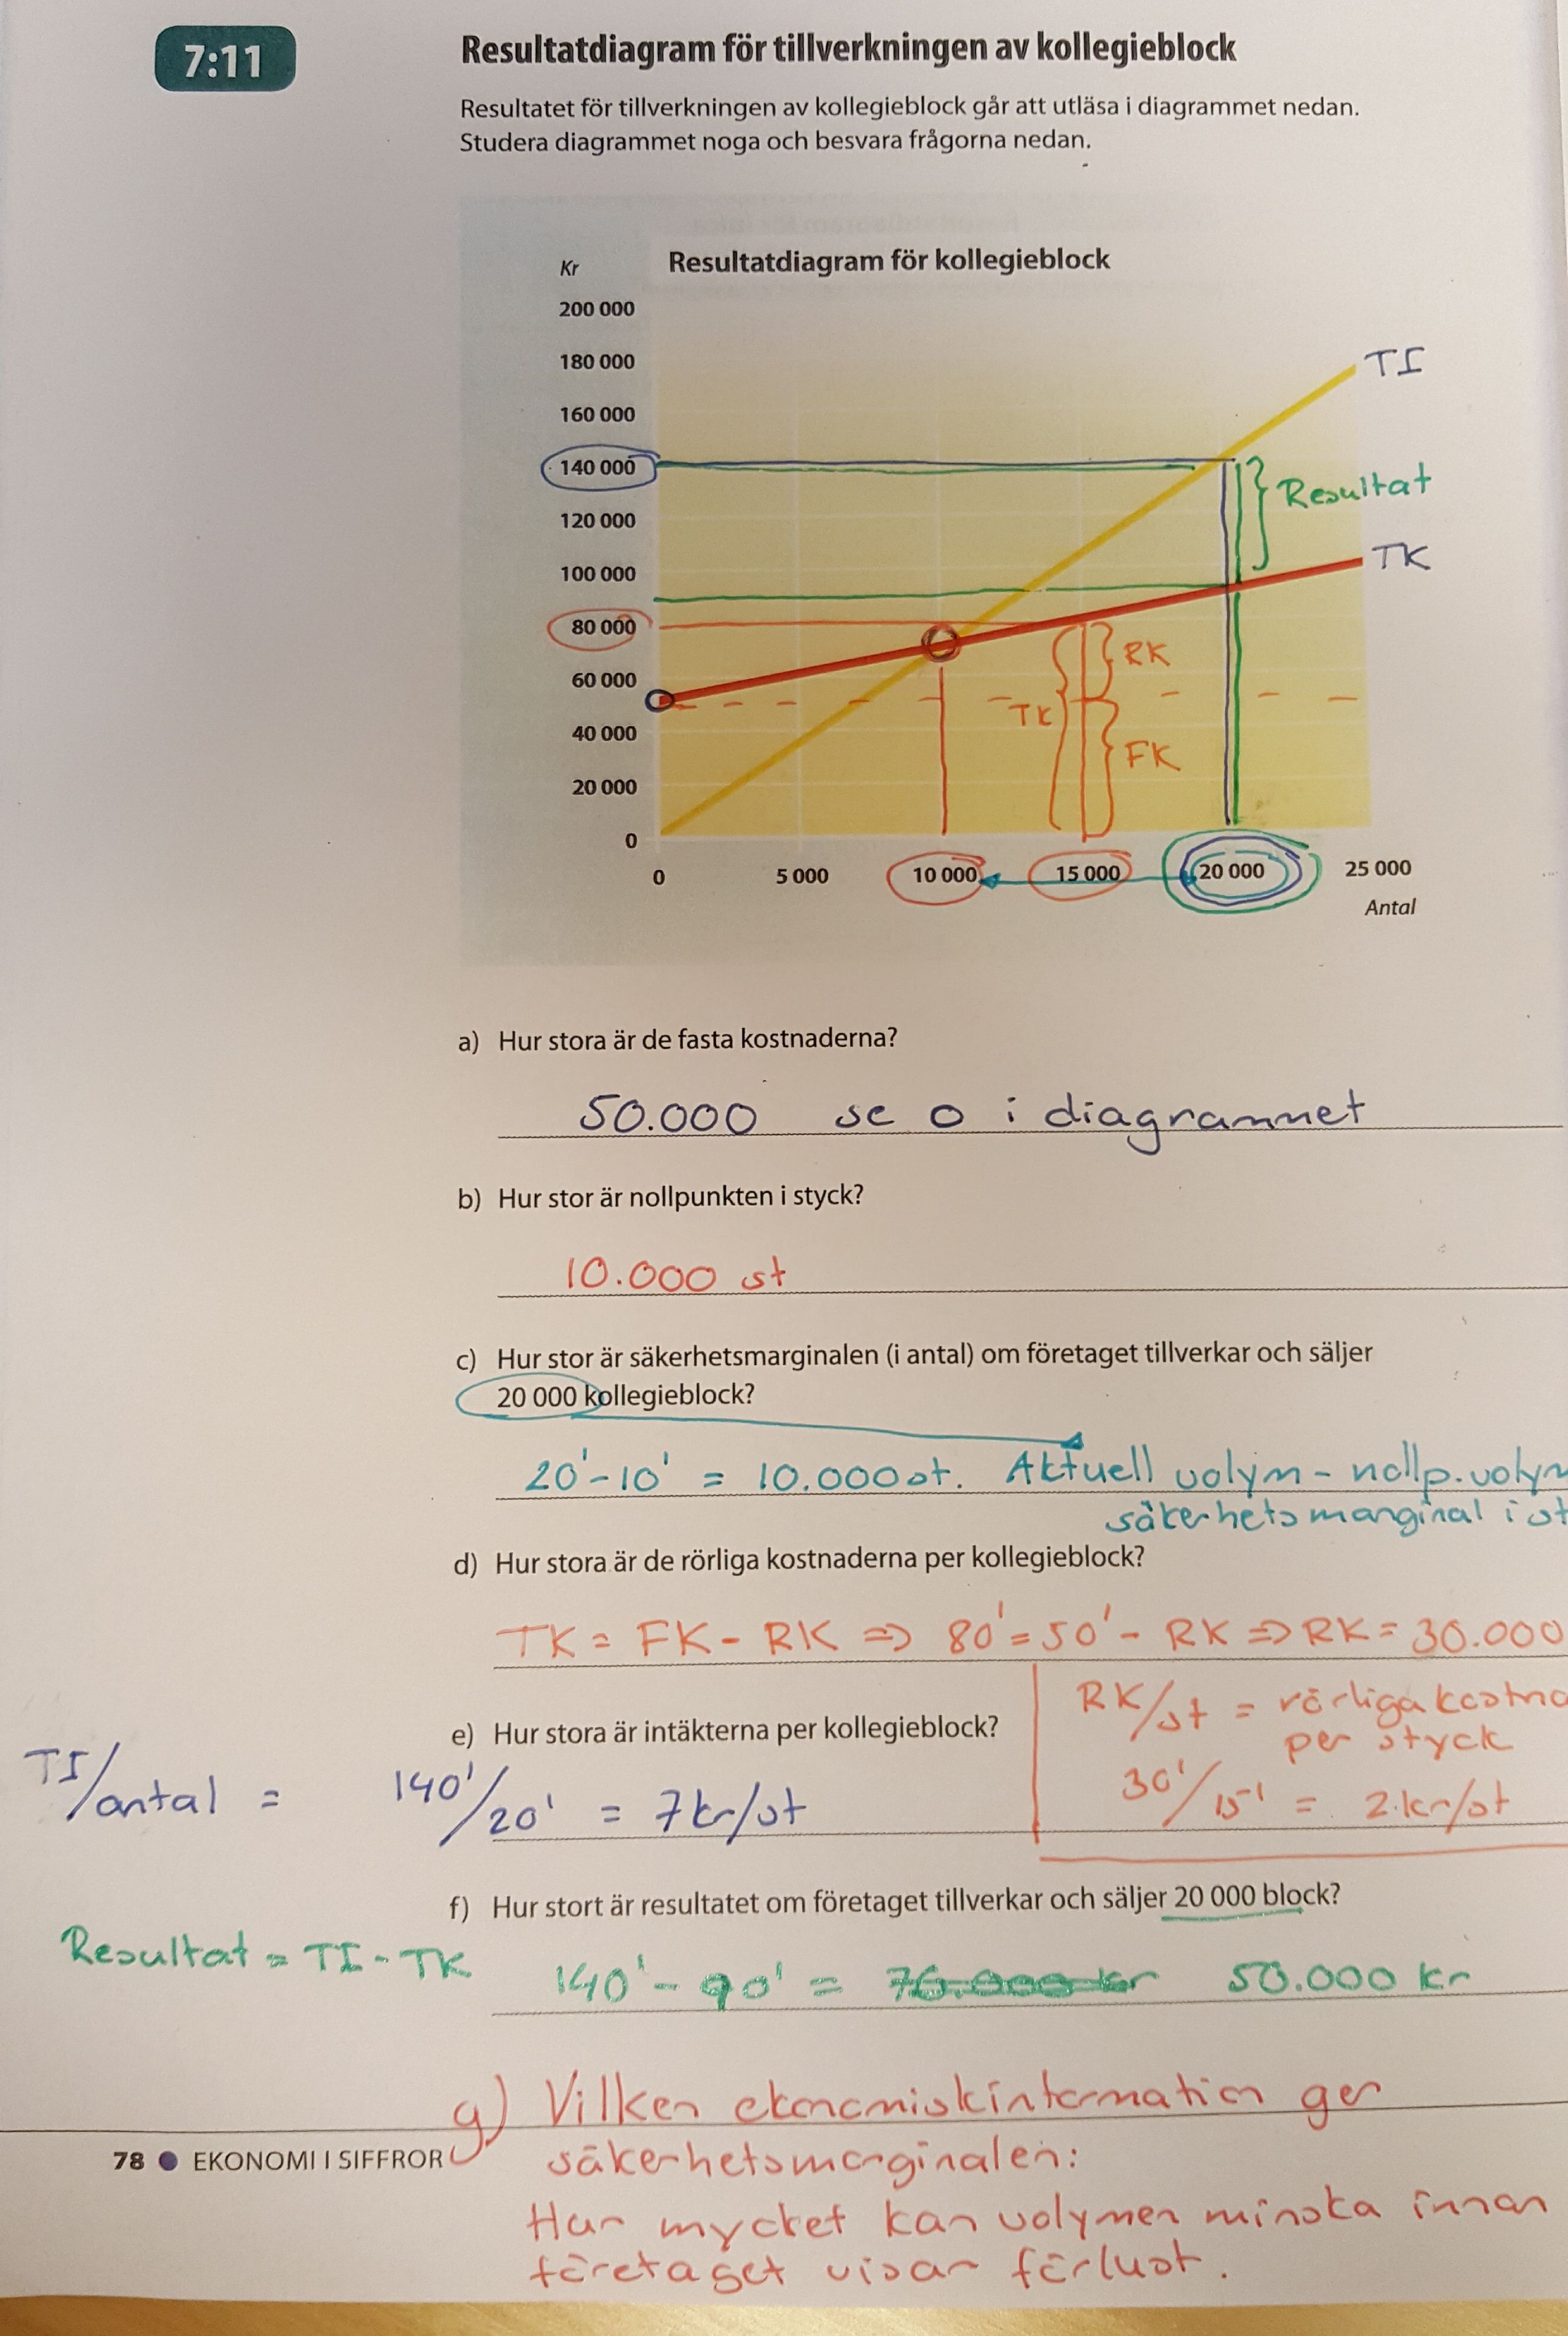 7:11
Resultatdiagram för tillverkningen av kollegieblock
Resultatet för tillverkningen av kollegieblock går att utläsa i diagrammet nedan.
Studera diagrammet noga och besvara frågorna nedan.
Kr
Resultatdiagram för kollegieblock
200 000
180 000
TI
160 000
140 000
Resultat
120 000
100 000
TK
80 000
RK
60 000
TK
40 000
FK
20 000
0
0 5 000 10 000 15 000 20 000 25 000
Antal
a) Hur stora är de fasta kostnaderna?
50.000 se O i diagrammet
b) Hur stor är nollpunkten i styck?
10.000 st
c) Hur stor är säkerhetsmarginalen (i antal) om företaget tillverkar och säljer
20 000 kollegieblock?
20' - 10' = 10.000 st. Aktuell volym - nollp.volym
säkerhetsmarginal i st
d) Hur stora är de rörliga kostnaderna per kollegieblock?
TK = FK - RK => 80' = 50' - RK => RK = 30.000
RK/st = rörliga kostna
per styck
30'/15' = 2 kr/st
e) Hur stora är intäkterna per kollegieblock?
TI/antal = 140'/20' = 7 kr/st
f) Hur stort är resultatet om företaget tillverkar och säljer 20 000 block?
Resultat = TI - TK 140' - 90' = 70.000 kr 50.000 kr
g) Vilken ekonomiskinformation ger
säkerhetsmarginalen:
Hur mycket kan volymen minska innan
företaget visar förlust.
78 ● EKONOMI I SIFFROR